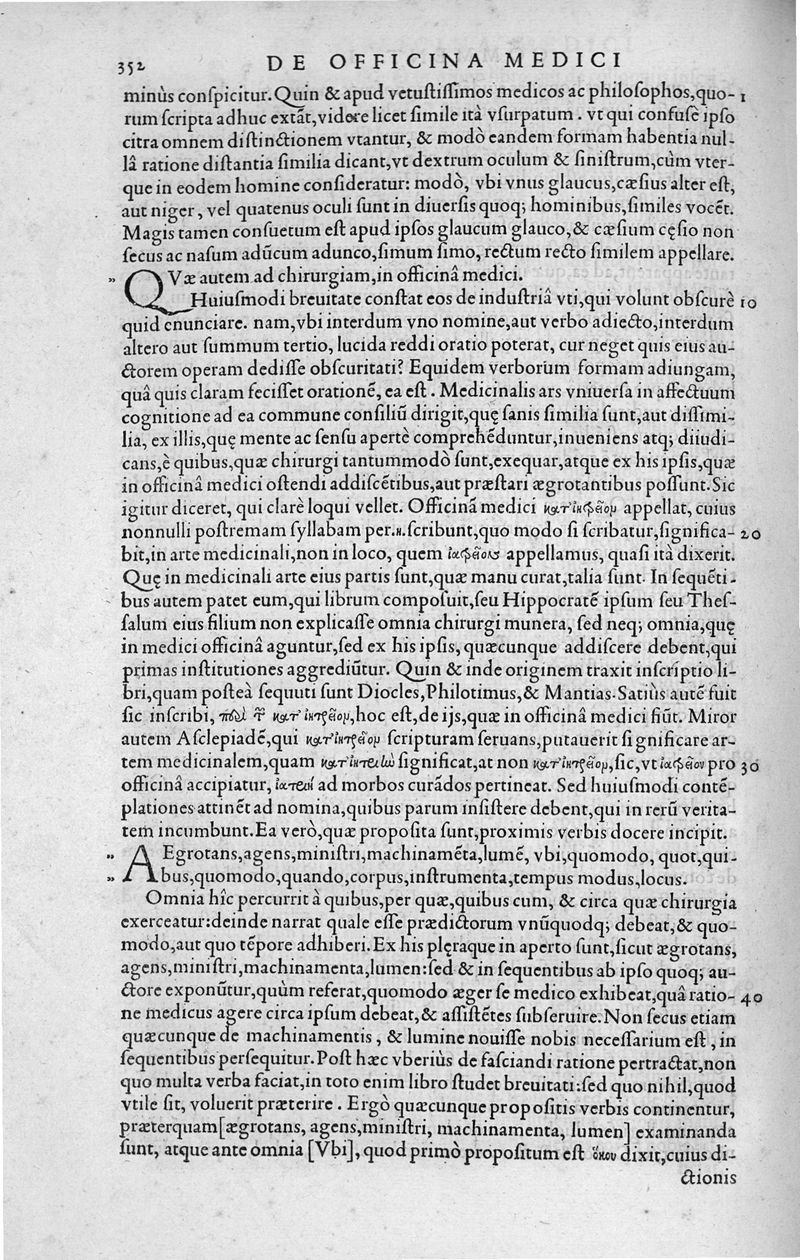 352 DE OFFICINA MEDICI
minùs conſpicitur. Quin & apud vetuſtiſſimos medicos ac philoſophos, quo- 1
rum ſcripta adhuc extāt, videre licet ſimile ità vſurpatum. vt qui confuſè ipſo
citra omnem diſtinctionem vtantur, & modò eandem formam habentia nul-
lâ ratione diſtantia ſimilia dicant, vt dextrum oculum & ſiniſtrum, cùm vter-
que in eodem homine conſideratur: modò, vbi vnus glaucus, cæſius alter eſt,
aut niger, vel quatenus oculi ſunt in diuerſis quoq; hominibus, ſimiles vocēt.
Magis tamen conſuetum eſt apud ipſos glaucum glauco, & cæſium cęſio non
ſecus ac naſum adūcum adunco, ſimum ſimo, rectum recto ſimilem appellare.
" QVæ autem ad chirurgiam, in officinâ medici.
Huiuſmodi breuitate conſtat eos de induſtriâ vti, qui volunt obſcurè 10
quid enunciare. nam, vbi interdum vno nomine, aut verbo adiecto, interdum
altero aut ſummum tertio, lucida reddi oratio poterat, cur neget quis eius au-
ctorem operam dediſſe obſcuritati? Equidem verborum formam adiungam,
quâ quis claram feciſſet orationē, ea eſt. Medicinalis ars vniuerſa in affectuum
cognitione ad ea commune conſiliū dirigit, quę ſanis ſimilia ſunt, aut diſſimi-
lia, ex illis, quę mente ac ſenſu apertè comprehēduntur, inueniens atq; diiudi-
cans, è quibus, quæ chirurgi tantummodò ſunt, exequar, atque ex his ipſis, quæ
in officinâ medici oſtendi addiſcētibus, aut præſtari ægrotantibus poſſunt. Sic
igitur diceret, qui clarè loqui vellet. Officinā medici κατ' ἰητρεῖον appellat, cuius
nonnulli poſtremam ſyllabam per. η. ſcribunt, quo modo ſi ſcribatur, ſignifica- 20
bit, in arte medicinali, non in loco, quem appellamus, quaſi ità dixerit.
Quę in medicinali arte eius partis ſunt, quæ manu curat, talia ſunt. In ſequēti-
bus autem patet eum, qui librum compoſuit, ſeu Hippocratē ipſum ſeu Theſ-
ſalum eius filium non explicaſſe omnia chirurgi munera, ſed neq; omnia, quę
in medici officinâ aguntur, ſed ex his ipſis, quæcunque addiſcere debent, qui
primas inſtitutiones aggrediūtur. Quin & inde originem traxit inſcríptio li-
bri, quam poſteà ſequuti ſunt Diocles, Philotimus, & Mantias. Satiùs autē fuit
ſic inſcribi, περὶ τῶν κατ' ἰητρεῖον, hoc eſt, de ijs, quæ in officinâ medici fiūt. Miror
autem Aſclepiadē, qui κατ' ἰητρεῖον ſcripturam ſeruans, putauerit ſignificare ar-
tem medicinalem, quam ſignificat, at non κατ' ἰητρεῖον, ſic, vt ἰατρεῖον pro 30
officinâ accipiatur, ad morbos curādos pertineat. Sed huiuſmodi contē-
plationes attinēt ad nomina, quibus parum inſiſtere debent, qui in rerū verita-
tem incumbunt. Ea verò, quæ propoſita ſunt, proximis verbis docere incipit.
" AEgrotans, agens, miniſtri, machinamēta, lumē, vbi, quomodo, quot, qui-
" bus, quomodo, quando, corpus, inſtrumenta, tempus modus, locus.
Omnia hîc percurrit à quibus, per quæ, quibus cum, & circa quæ chirurgia
exerceatur: deinde narrat quale eſſe prædictorum vnūquodq; debeat, & quo-
modo, aut quo tēpore adhiberi. Ex his plęraque in aperto ſunt, ſicut ægrotans,
agens, miniſtri, machinamenta, lumen: ſed & in ſequentibus ab ipſo quoq; au-
ctore exponūtur, quùm referat, quomodo æger ſe medico exhibeat, quâ ratio- 40
ne medicus agere circa ipſum debeat, & aſſiſtētes ſubſeruire. Non ſecus etiam
quæcunque de machinamentis, & lumine nouiſſe nobis neceſſarium eſt, in
ſequentibus perſequitur. Poſt hæc vberiùs de faſciandi ratione pertractat, non
quo multa verba faciat, in toto enim libro ſtudet breuitati: ſed quo nihil, quod
vtile ſit, voluerit præterire. Ergò quæcunque propoſitis verbis continentur,
præterquam [ægrotans, agens, miniſtri, machinamenta, lumen] examinanda
ſunt, atque ante omnia [Vbi], quod primò propoſitum eſt ὅκου dixit, cuius di-
ctionis